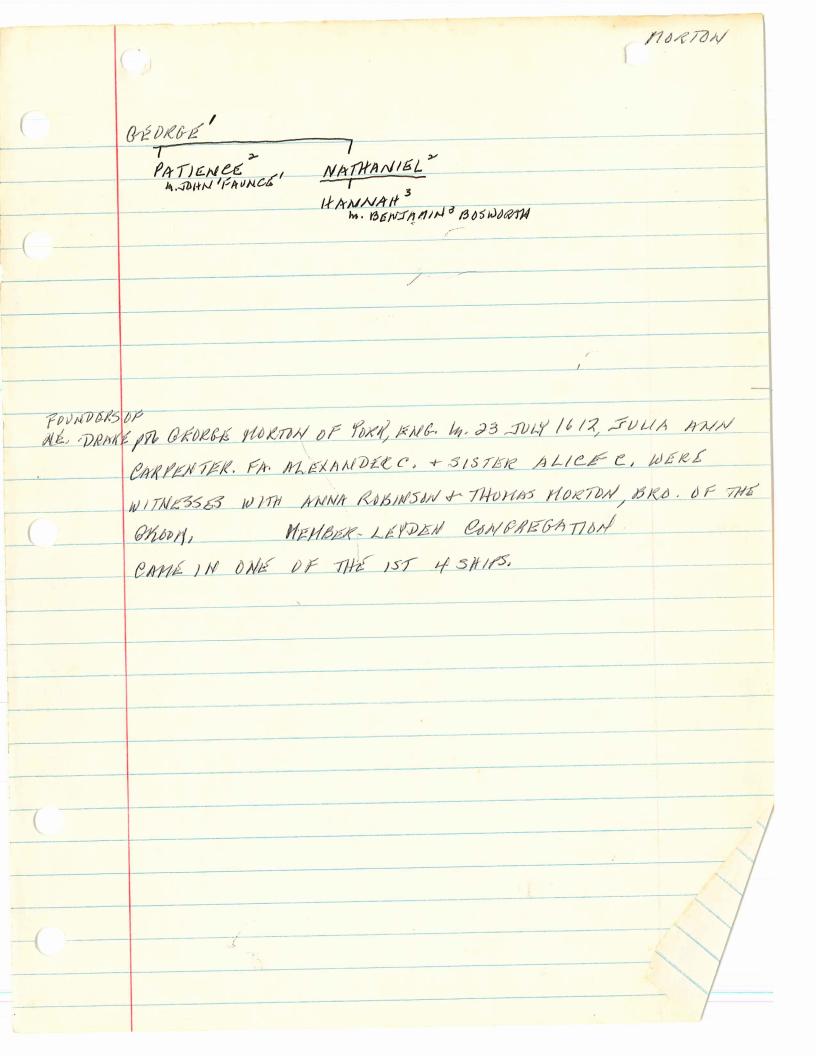 MORTON
GEORGE¹
PATIENCE² NATHANIEL²
m. JOHN¹ FAUNCE¹
HANNAH³
m. BENJAMIN³ BOSWORTH
FOUNDERS OF
N.E. DRAKE GEORGE MORTON OF YORK, ENG. m. 23 JULY 1612, JULIA ANN
CARPENTER. FA. ALEXANDER C. + SISTER ALICE C. WERE
WITNESSES WITH ANNA ROBINSON + THOMAS MORTON, BRO. OF THE
GROOM. MEMBER - LEYDEN CONGREGATION
CAME IN ONE OF THE 1ST 4 SHIPS.